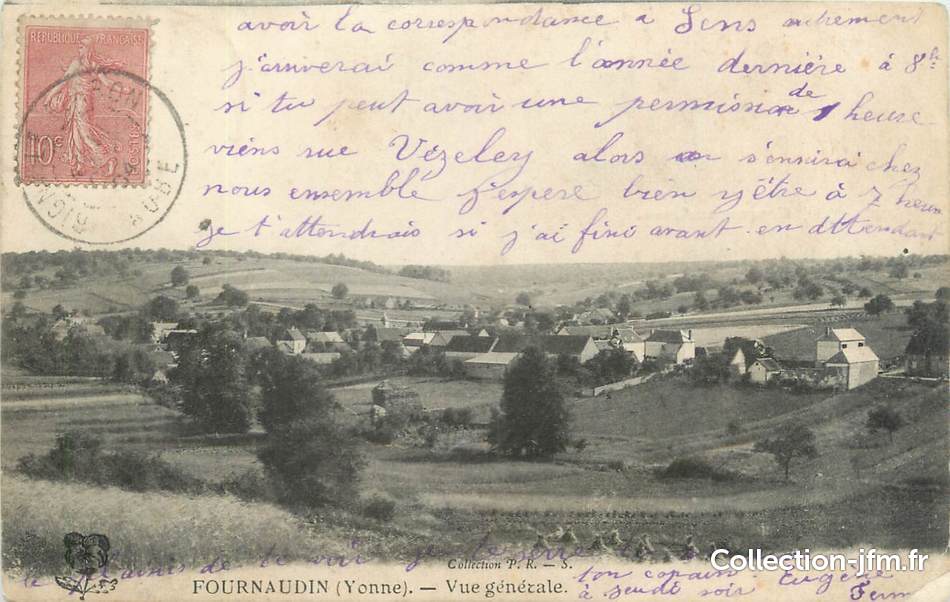 avoir la correspondance a Sens autrement
j'arriverai comme l'année dernière à 8h
si tu peut avoir une permission de 1 heure
viens rue Vézeley alors on s'enira chez
nous ensemble j'espere bien y être à 7 heure
je t'attendrais si j'ai fini avant en attendant
le plaisir de te voir je te serre la
ton copain Eugène
à jeudi soir Ferm
REPUBLIQUE FRANÇAISE
10c
POSTES
AUBE
Collection P. R. — S.
FOURNAUDIN (Yonne). — Vue générale.
Collection-jfm.fr